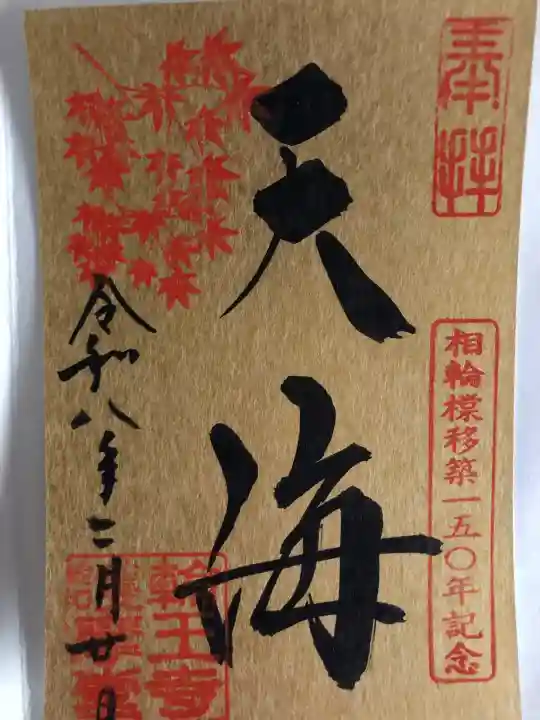 奉拝
相輪橖移築一五〇年記念
天海
令和八年二月廿日
輪王寺
護摩堂